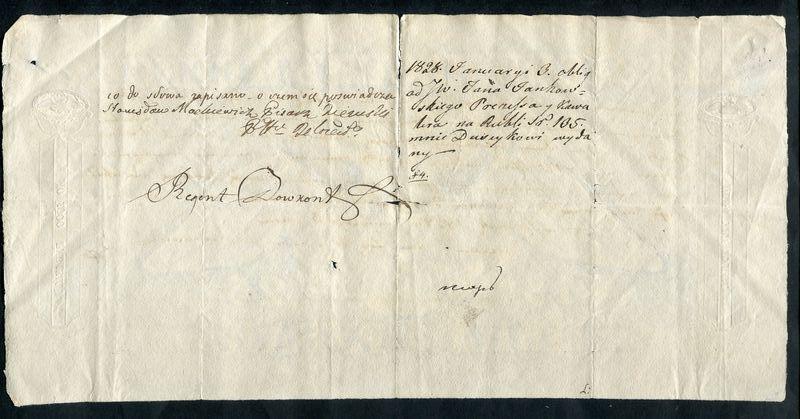 co do słowa zapisano o czem się poświadcza
Stanisław Mackiewicz Pisarz
Regent Dowkont
1828. Januaryi 3. oblig
od JW. Jana Jankow-
skiego Prezessa y Kawa
lera na Rubli Sr. 185.
mnie Duseykowi wyda
ny
№ 4.